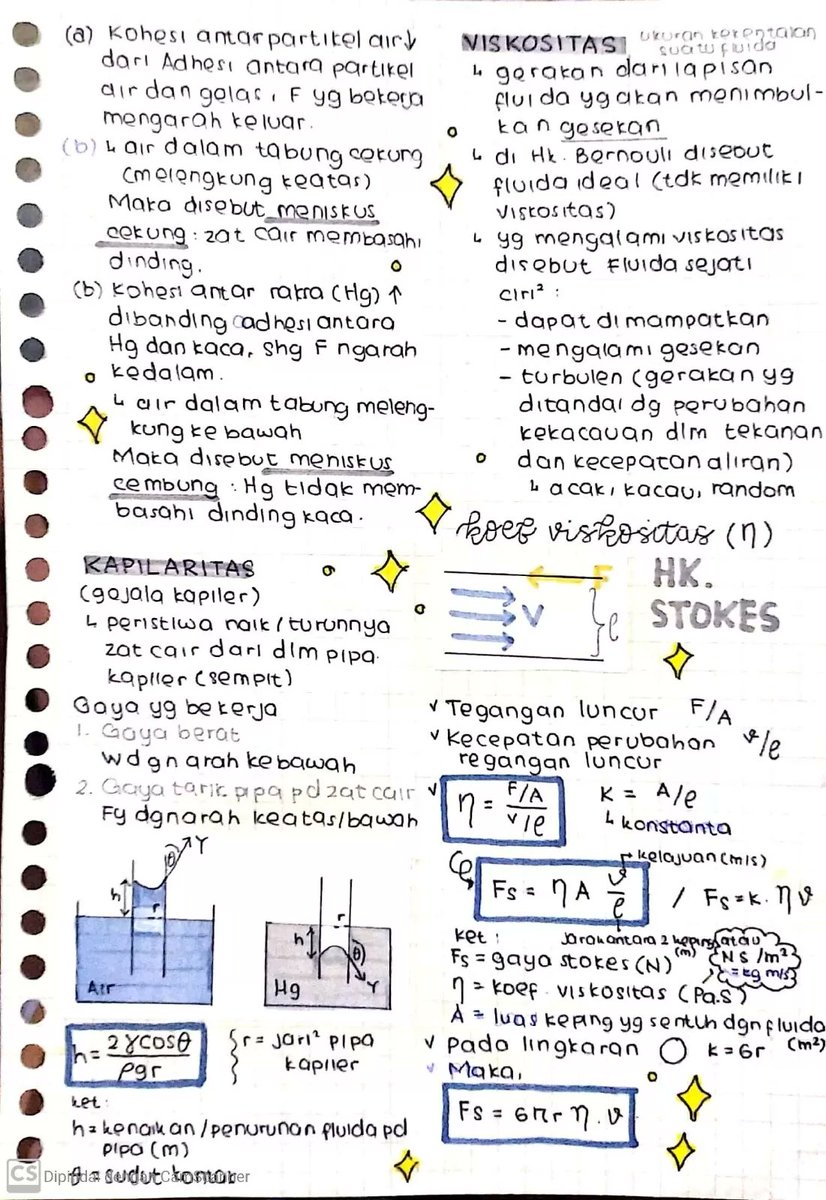 (a) Kohesi antarpartikel air↓
dari Adhesi antara partikel
air dan gelas, F yg bekerja
mengarah keluar.
(b) ↳ air dalam tabung cekung
(melengkung keatas)
Maka disebut meniskus
cekung : zat cair membasahi
dinding.
(b) Kohesi antar raksa (Hg) ↑
dibanding adhesi antara
Hg dan kaca, shg F ngarah
kedalam.
↳ air dalam tabung meleng-
kung ke bawah
Maka disebut meniskus
cembung : Hg tidak mem-
basahi dinding kaca.
KAPILARITAS
(gejala kapiler)
↳ peristiwa naik/turunnya
zat cair dari dlm pipa
kapiler (sempit)
Gaya yg bekerja
1. Gaya berat
W dgn arah kebawah
2. Gaya tarik pipa pd zat cair
Fy dgn arah keatas/bawah
θ Y
h r
Air
h r θ
Hg Y
h = 2γcosθ / ρgr
r = jari² pipa
kapiler
ket:
h = kenaikan/penurunan fluida pd
pipa (m)
θ = sudut
CS Dipindai dengan CamScanner
VISKOSITAS ukuran kekentalan
suatu fluida
↳ gerakan dari lapisan
fluida yg akan menimbul-
kan gesekan
↳ di Hk. Bernouli disebut
fluida ideal (tdk memiliki
viskositas)
↳ yg mengalami viskositas
disebut Fluida sejati
ciri² :
- dapat di mampatkan
- mengalami gesekan
- turbulen (gerakan yg
ditandai dg perubahan
kekacauan dlm tekanan
dan kecepatan aliran)
↳ acak, kacau, random
koef viskositas (η)
F
V
ℓ
HK.
STOKES
✓ Tegangan luncur F/A
✓ Kecepatan perubahan v/ℓ
regangan luncur
✓ η = F/A / v/ℓ K = A/ℓ
↳ konstanta
kelajuan (m/s)
Fs = η A v/ℓ / Fs = k. η v
ket : jarak antara 2 keping (m)
atau
NS/m²
= kg m/s
Fs = gaya stokes (N)
η = koef. viskositas (Pa.S)
A = luas keping yg sentuh dgn fluida (m²)
✓ Pada lingkaran ◯ k = 6r
✓ Maka,
Fs = 6πr η . v